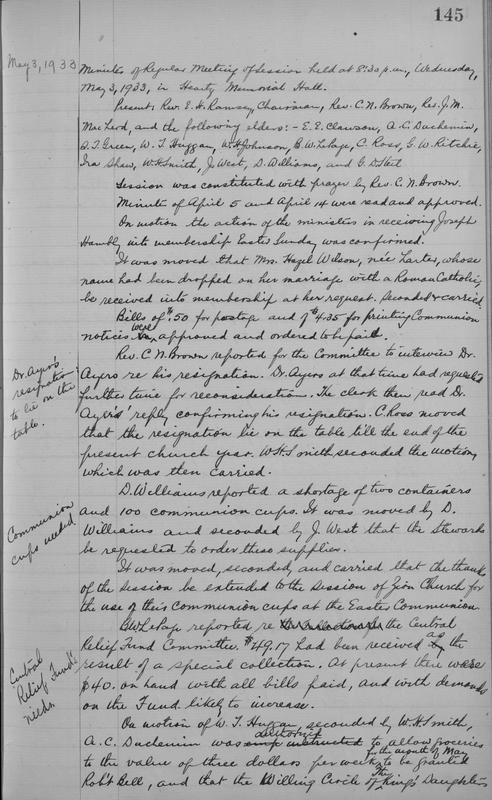 145
May 3, 1933
Minutes of Regular Meeting of Session held at 8:30 p.m., Wednesday,
May 3, 1933, in Heartz Memorial Hall.
Present: Rev. E. H. Ramsay, Chairman, Rev. C. N. Brown, Rev. J. M.
MacLeod, and the following elders:- E. E. Clawson, A. C. Duchemin,
D. T. Green, W. T. Huggan, W. H. Johnson, B. W. LePage, C. Ross, G. W. Ritchie,
Ira Shaw, W. H. Smith, J. West, D. Williams, and G. D.
Session was constituted with prayer by Rev. C. N. Brown.
Minute of April 5 and April 14 were read and approved.
On motion the action of the ministers in receiving Joseph
Hambly into membership Easter Sunday was confirmed.
It was moved that Mrs. Hazel Wilson, née Larter, whose
name had been dropped on her marriage with a Roman Catholic,
be received into membership at her request. Seconded & carried.
Bills of $.50 for postage and of $4.35 for printing Communion
notices were approved and ordered to be paid.
Rev. C. N. Brown reported for the Committee to interview Dr.
Ayers re his resignation. Dr. Ayers at that time had requested
further time for reconsideration. The clerk then read Dr.
Ayers' reply confirming his resignation. C. Ross moved
that the resignation lie on the table till the end of the
present church year. W. H. Smith seconded the motion,
which was then carried.
Dr. Ayers's
resignation
to lie on the
table.
D. Williams reported a shortage of two containers
and 100 communion cups. It was moved by D.
Williams and seconded by J. West that the Stewards
be requested to order these supplies.
Communion
cups needed
It was moved, seconded, and carried that the thanks
of the session be extended to the Session of Zion Church for
the use of their communion cups at the Easter Communion.
B. W. LePage reported re the Central
Relief Fund Committee. $49.17 had been received as the
result of a special collection. At present there were
$40. on hand with all bills paid, and with demands
on the Fund likely to increase.
Central
Relief Fund
needs.
On motion of W. T. Huggan, seconded by W. H. Smith,
A. C. Duchemin was authorized to allow groceries
to the value of three dollars per week for the month of May to be granted
Rob't Bell, and that the Willing Circle of The King's Daughters